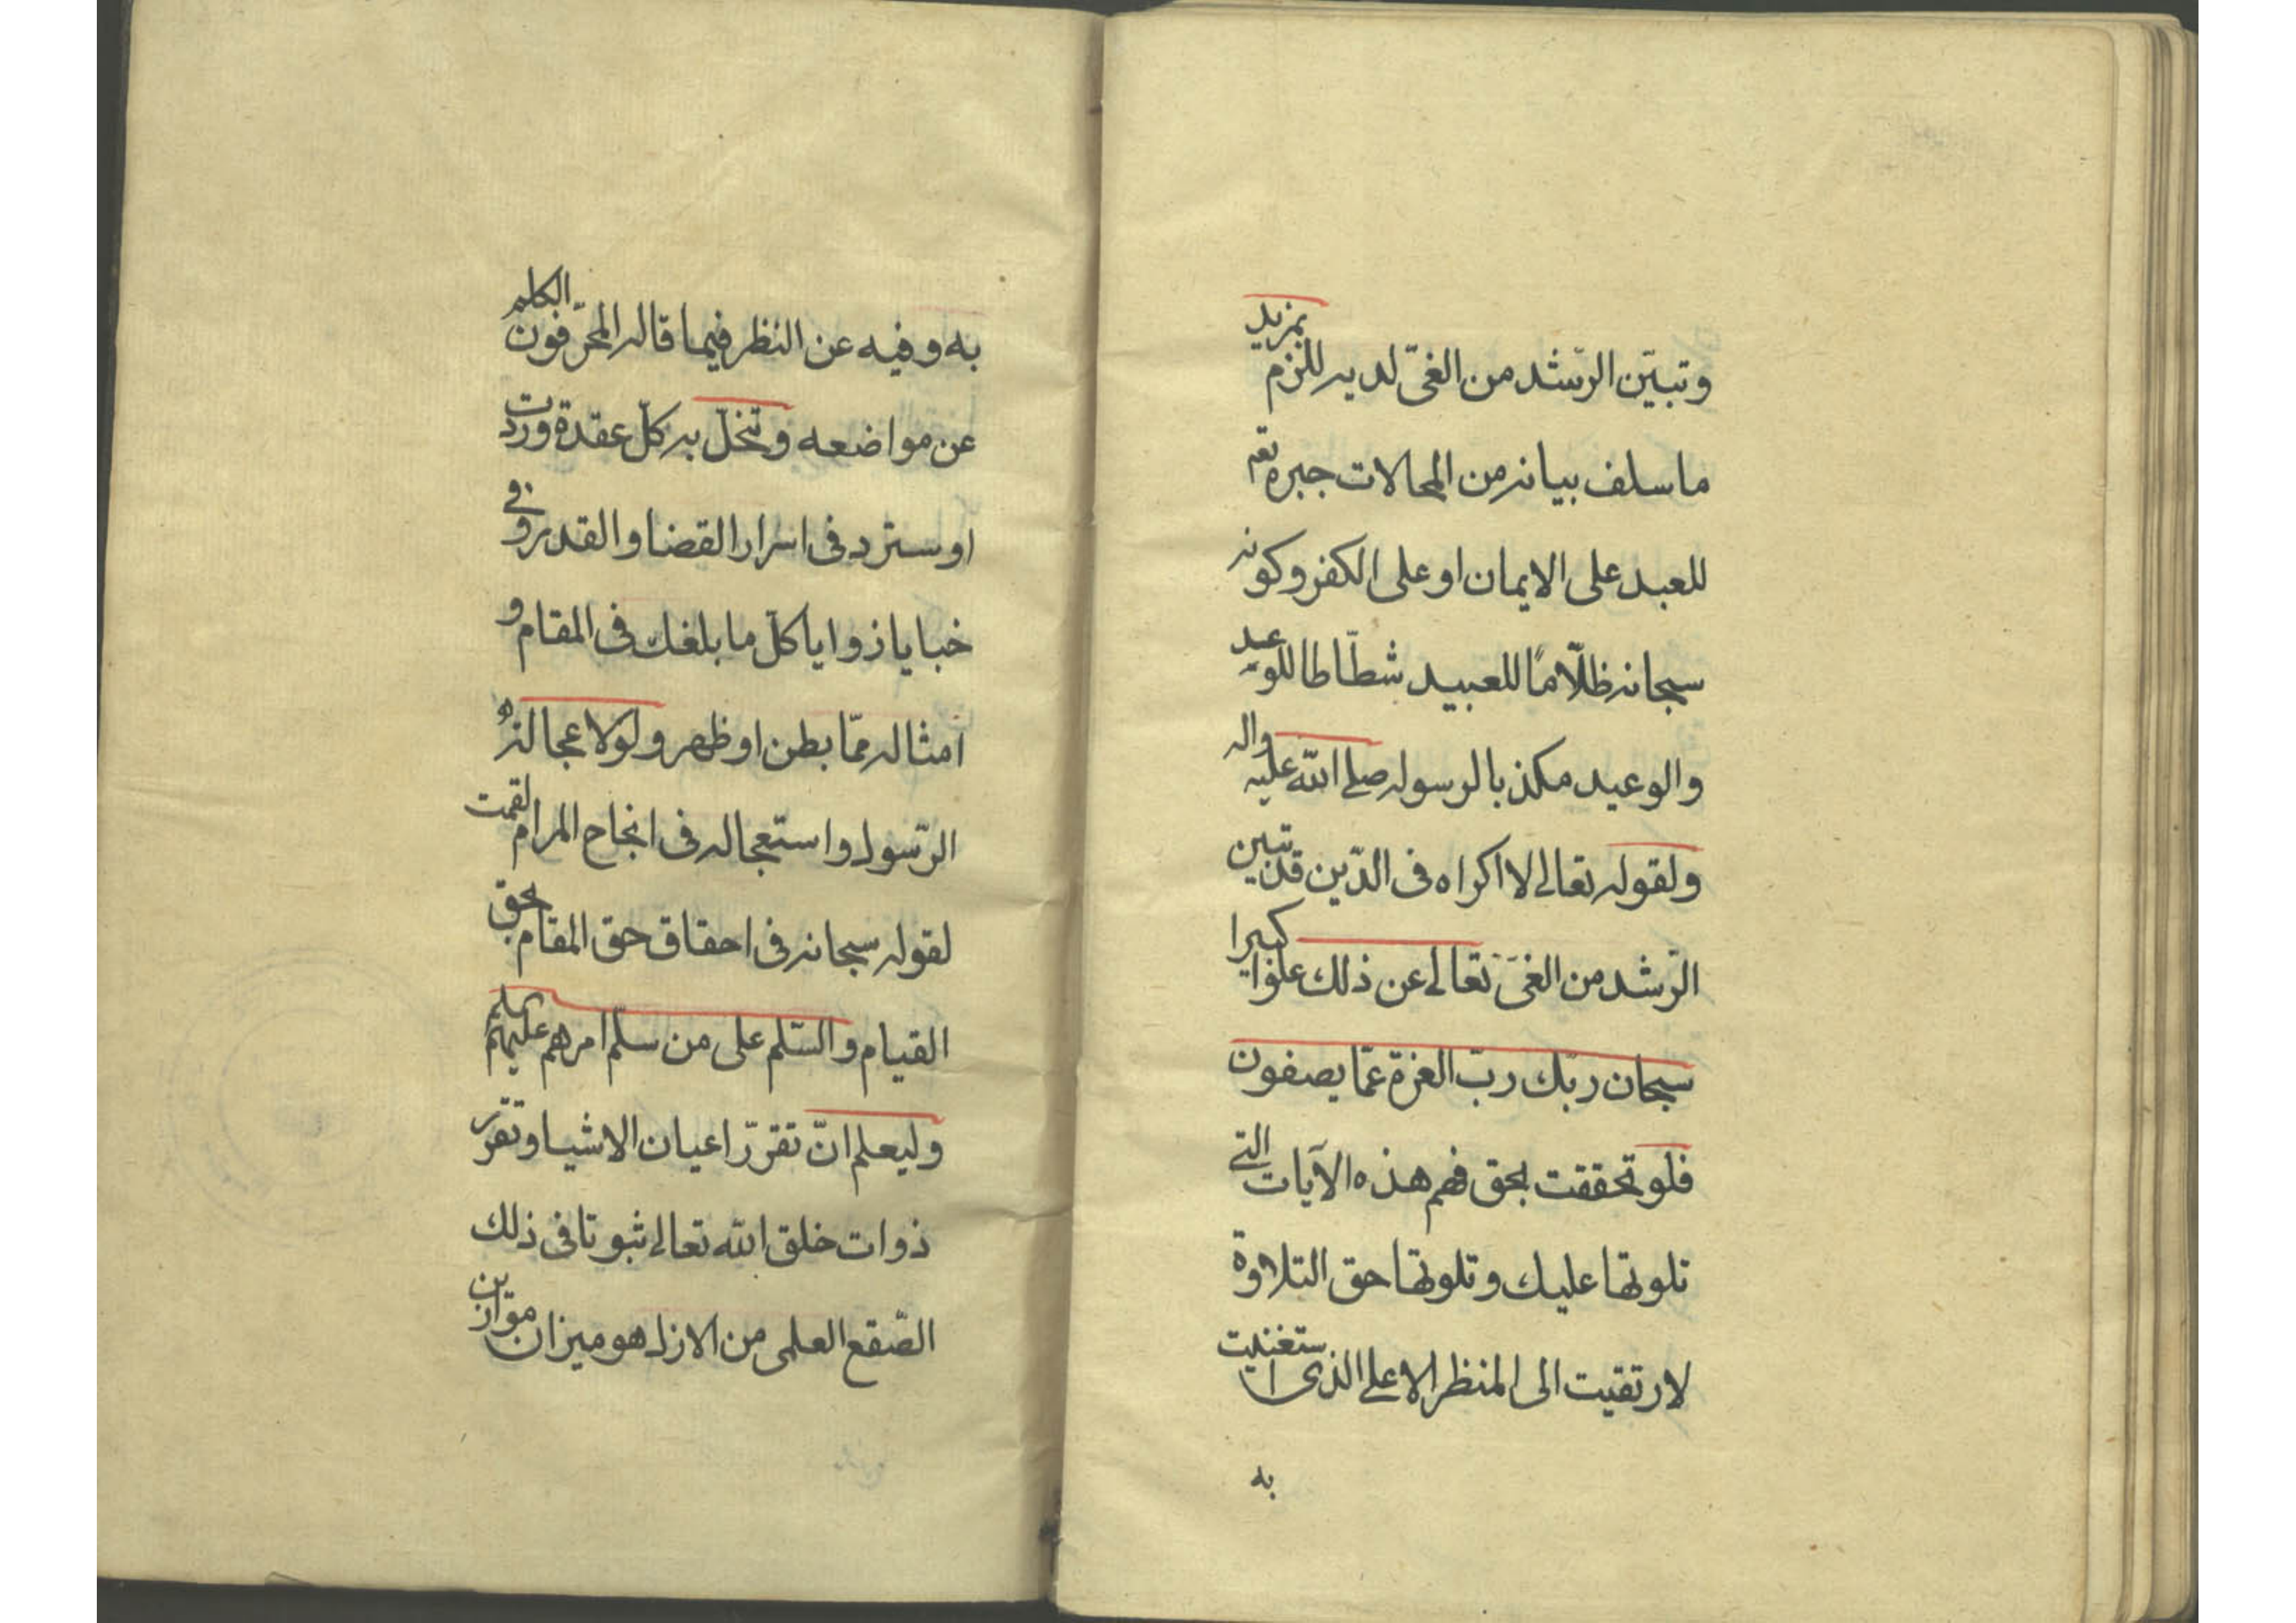 وتبيّن الرّشد من الغىّ لديه للزم بمزيد
ما سلف بيانه من المحالات جبره تعه
للعبد على الايمان او على الكفر وكونه
سبحانه ظلّامًا للعبيد شطّاطا للوعيد
والوعيد مكذبا لرسوله صلى الله عليه واله
ولقوله تعالى لا اكراه فى الدّين قد تبين
الرّشد من الغىّ تعالى عن ذلك علوا كبيرا
سبحان ربّك ربّ العزة عمّا يصفون
فلو تحققت بحق فهم هذه الآيات التى
تلوتها عليك وتلوتها حق التلاوة
لارتقيت الى المنظر الاعلى الذى استغنيت
به
به وفيه عن النظر فيما قاله المحرّفون الكلم
عن مواضعه وتنحلّ به كلّ عقدة وردت
او سترد فى اسرار القضا والقدر وفى
خبايا زوايا كلّ ما بلغك فى المقام و
امثاله ممّا بطن او ظهر ولولا عجالة
الرّسول واستعجاله فى انجاح المرام لقمت
لقوله سبحانه فى احقاق حق المقام بحق
القيام والسّلم على من سلّم امرهم عليهم
وليعلم انّ تقرّر اعيان الاشيا وتقرّر
ذوات خلق الله تعالى ثبوتا فى ذلك
الصّقع العلمى من الازل هو ميزان موازين